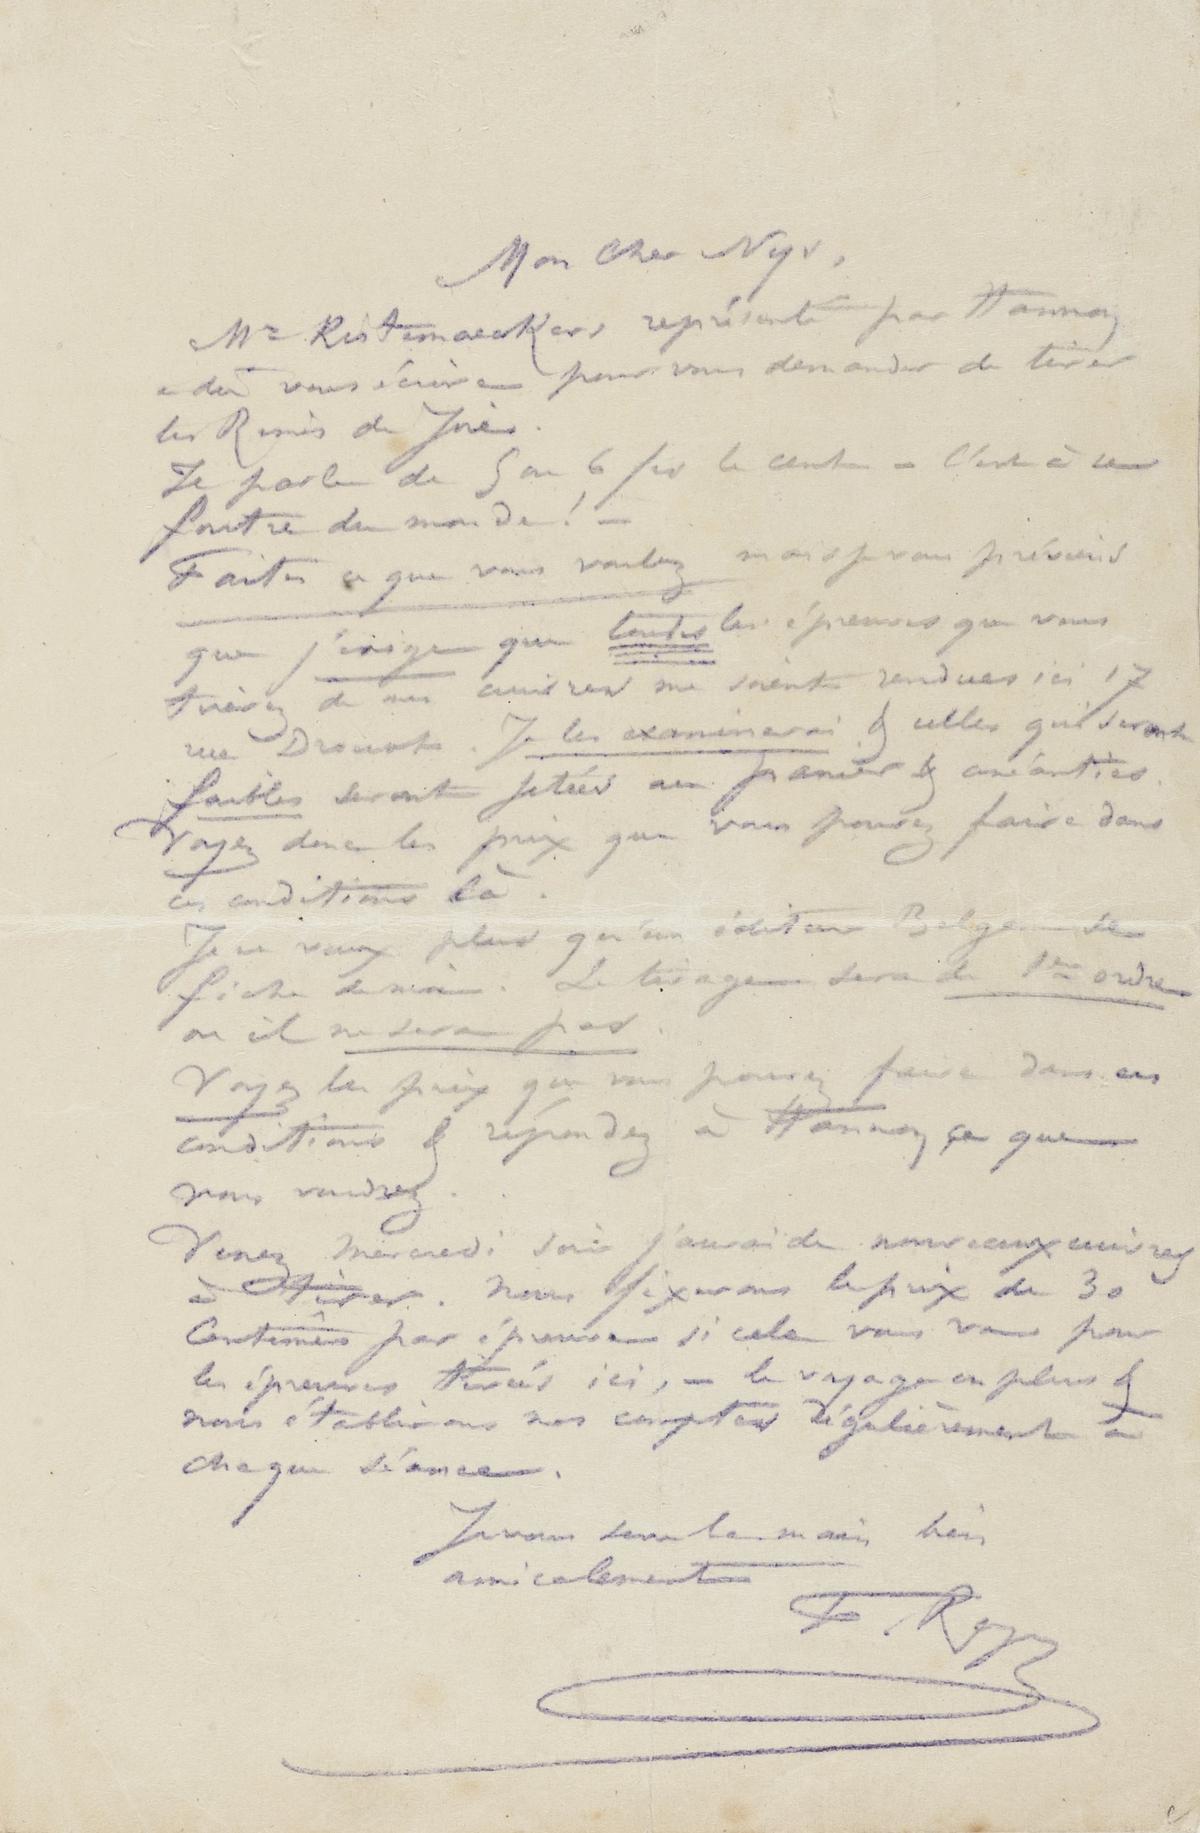 Mon Cher Nys,
Mr Kistemaeckers représenté par Hannoy
a dû vous écrire pour vous demander de tirer
les Rimes de Joie.
Je parle de 5 ou 6 frs le cent – C'est à se
foutre du monde! –
Faites ce que vous voulez mais je vous préviens
que j'exige que toutes les épreuves que vous
tirerez de mes cuivres me soient rendues ici 17
rue Drouot. Je les examinerai & celles qui seront
faibles seront jetées au panier & anéanties.
Voyez donc les prix que vous pouvez faire dans
ces conditions là.
Je ne veux plus qu'un éditeur Belge se
fiche de moi. Le tirage sera de 1er ordre
ou il ne sera pas.
Voyez les prix que vous pouvez faire dans ces
conditions & répondez à Hannoy ce que
vous voudrez.
Venez Mercredi soir j'aurai de nouveaux cuivres
à tirer. Nous fixerons le prix de 30
Centimes par épreuve si cela vous va pour
les épreuves tirées ici, – le voyage en plus &
nous établirons nos comptes régulièrement à
chaque séance.
Je vous serre la main bien
amicalement
F. Rops